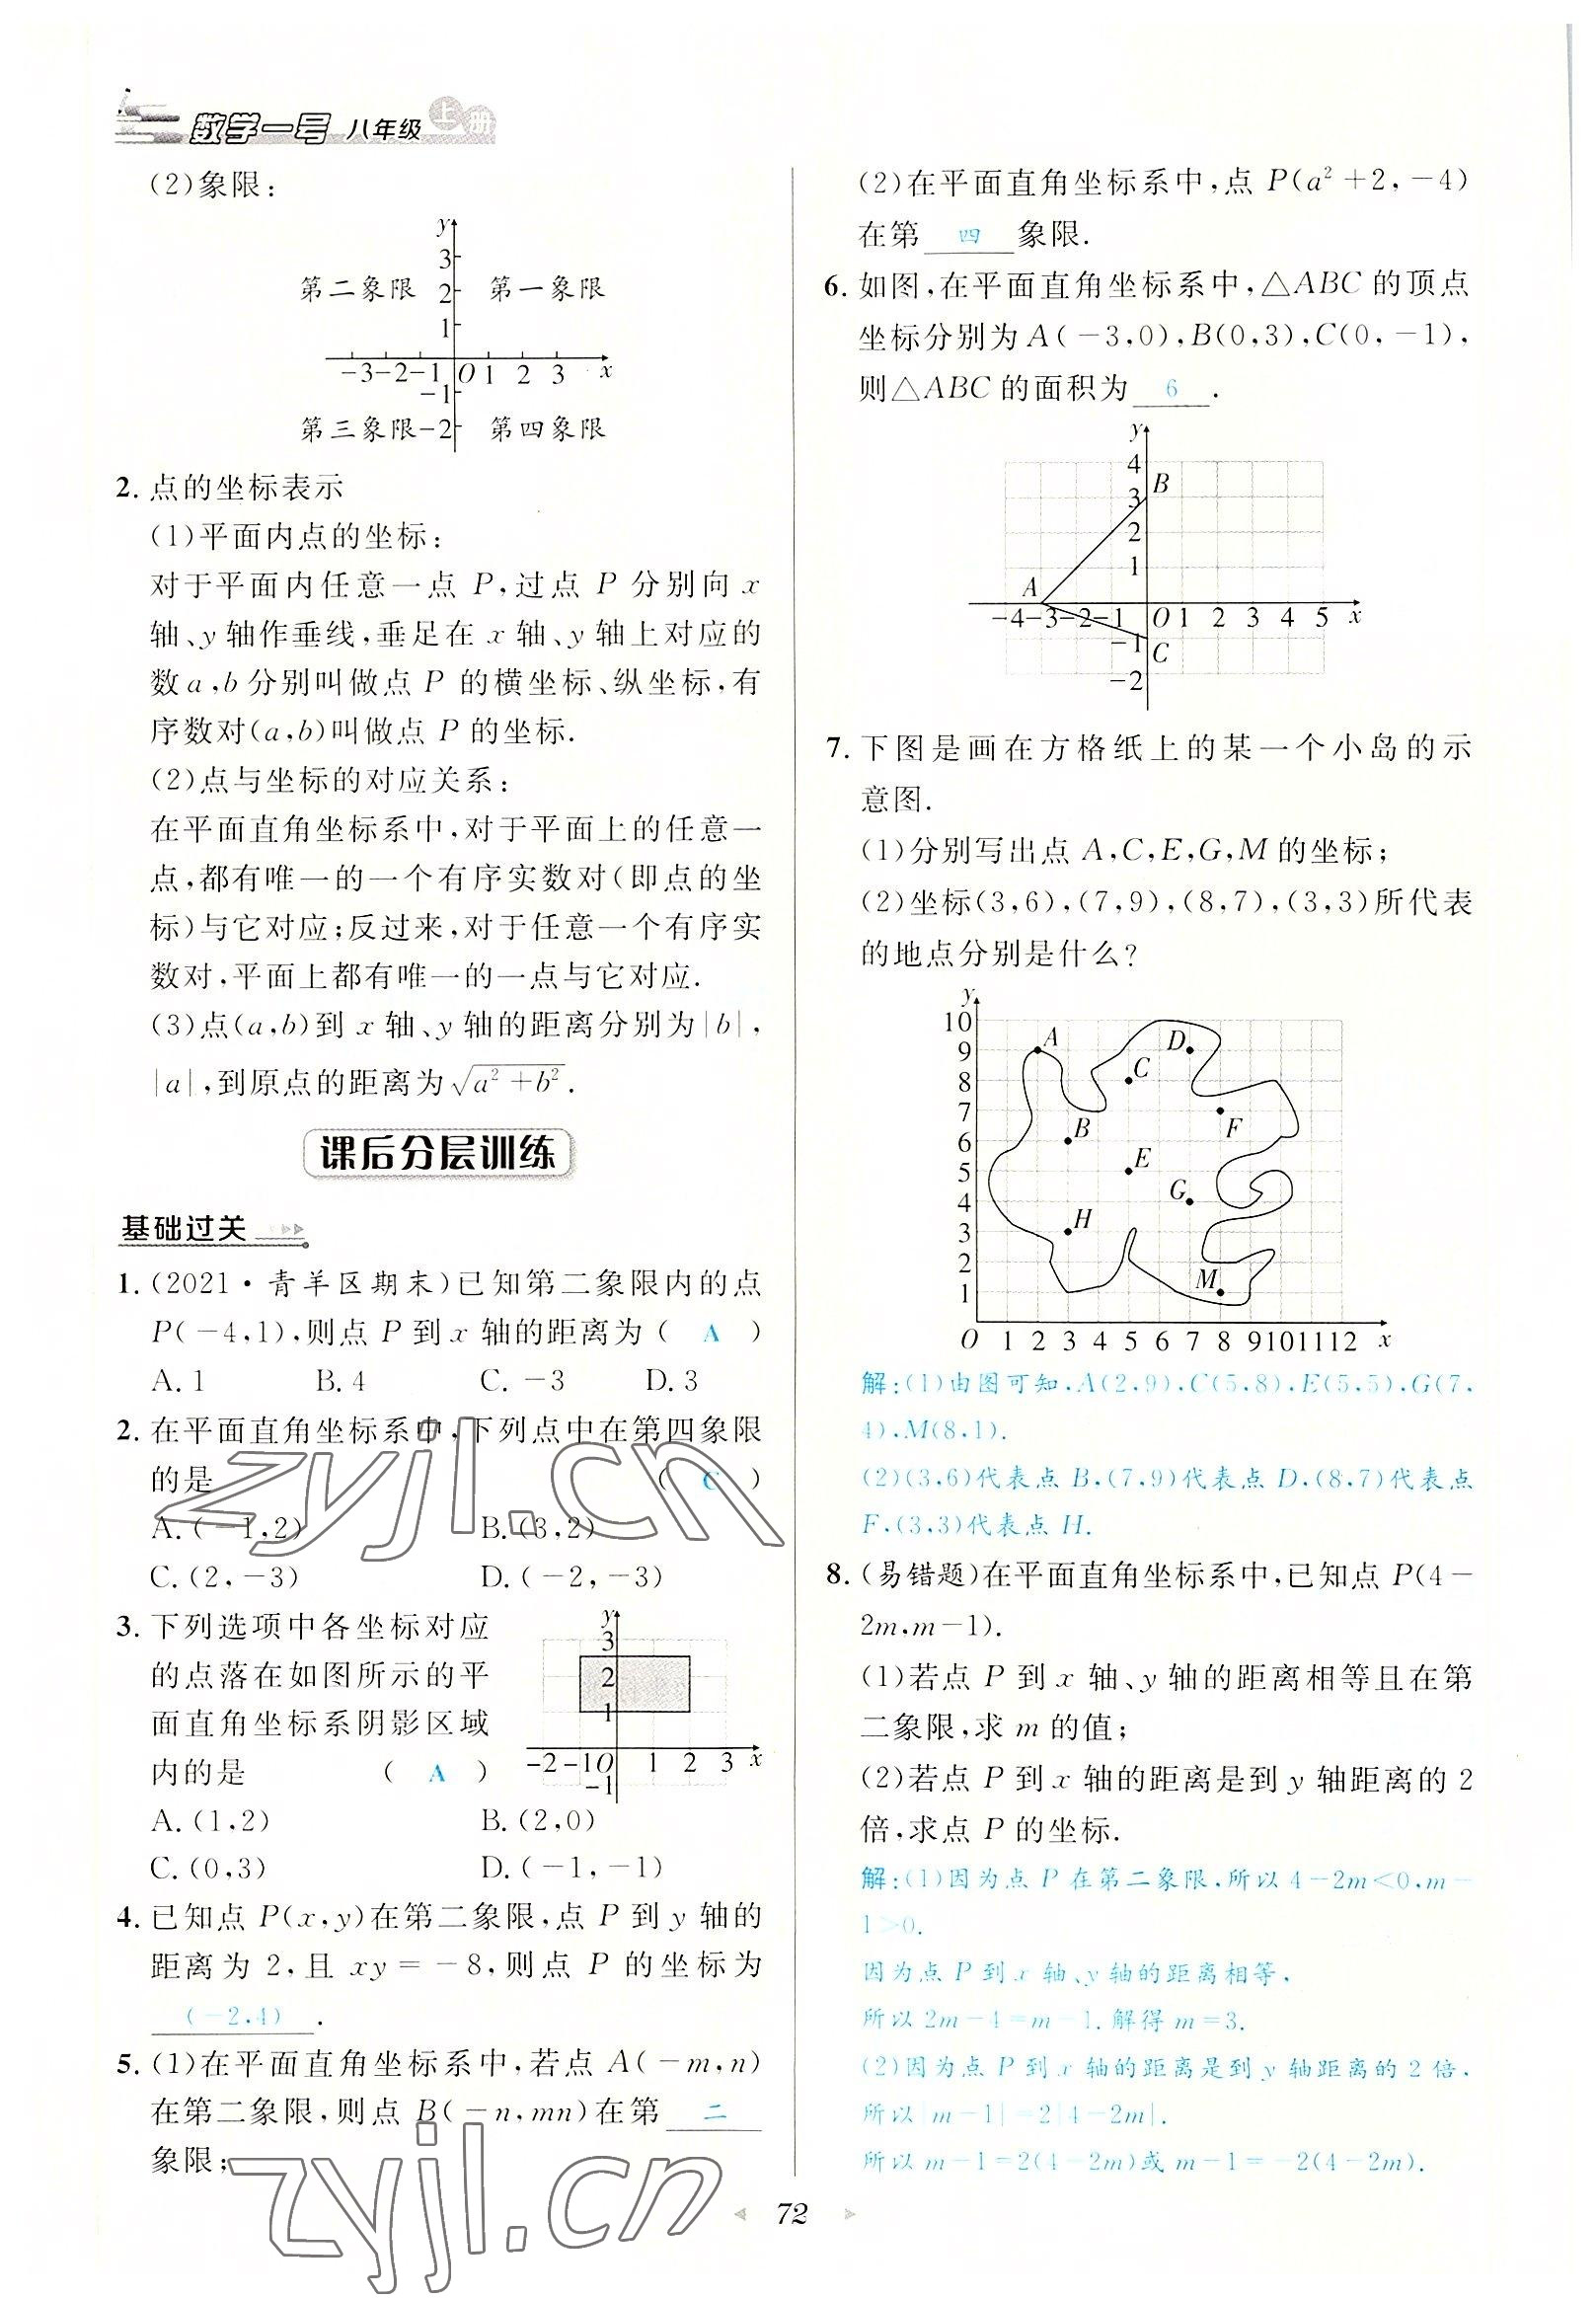 数学一号 八年级 上册
(2)象限:
y
3
第二象限 2 第一象限
1
-3-2-1 O 1 2 3 x
-1
第三象限 -2 第四象限
2. 点的坐标表示
(1)平面内点的坐标:
对于平面内任意一点 P,过点 P 分别向 x
轴、y 轴作垂线,垂足在 x 轴、y 轴上对应的
数a,b分别叫做点 P 的横坐标、纵坐标,有
序数对(a,b)叫做点 P 的坐标.
(2)点与坐标的对应关系:
在平面直角坐标系中,对于平面上的任意一
点,都有唯一的一个有序实数对(即点的坐
标)与它对应;反过来,对于任意一个有序实
数对,平面上都有唯一的一点与它对应.
(3)点(a,b)到 x 轴、y 轴的距离分别为|b|,
|a|,到原点的距离为√(a²+b²).
课后分层训练
基础过关
1. (2021·青羊区期末)已知第二象限内的点
P(-4,1),则点 P 到 x 轴的距离为 ( A )
A. 1 B. 4 C. -3 D. 3
2. 在平面直角坐标系中,下列点中在第四象限
的是 ( C )
A. (-1,2) B. (3,2)
C. (2,-3) D. (-2,-3)
3. 下列选项中各坐标对应
的点落在如图所示的平
面直角坐标系阴影区域
内的是 ( A )
y
3
2
1
-2 -1 O 1 2 3 x
-1
A. (1,2) B. (2,0)
C. (0,3) D. (-1,-1)
4. 已知点 P(x,y)在第二象限,点 P 到 y 轴的
距离为 2,且 xy=-8,则点 P 的坐标为
(-2,4) .
5. (1)在平面直角坐标系中,若点 A(-m,n)
在第二象限,则点 B(-n,mn)在第 二
象限;
(2)在平面直角坐标系中,点 P(a²+2,-4)
在第 四 象限.
6. 如图,在平面直角坐标系中,△ABC 的顶点
坐标分别为 A(-3,0),B(0,3),C(0,-1),
则△ABC 的面积为 6 .
y
4
3 B
2
1
A
-4-3-2-1 O 1 2 3 4 5 x
-1 C
-2
7. 下图是画在方格纸上的某一个小岛的示
意图.
(1)分别写出点 A,C,E,G,M 的坐标;
(2)坐标(3,6),(7,9),(8,7),(3,3)所代表
的地点分别是什么?
y
10
9 A D
8 C
7 F
6 B
5 E
4 G
3 H
2
1 M
O 1 2 3 4 5 6 7 8 9 10 11 12 x
解:(1)由图可知,A(2,9),C(5,8),E(5,5),G(7,
4),M(8,1).
(2)(3,6)代表点 B,(7,9)代表点 D,(8,7)代表点
F,(3,3)代表点 H.
8. (易错题)在平面直角坐标系中,已知点 P(4-
2m,m-1).
(1)若点 P 到 x 轴、y 轴的距离相等且在第
二象限,求 m 的值;
(2)若点 P 到 x 轴的距离是到 y 轴距离的 2
倍,求点 P 的坐标.
解:(1)因为点 P 在第二象限,所以 4-2m<0,m-
1>0.
因为点 P 到 x 轴、y 轴的距离相等,
所以 2m-4=m-1.解得 m=3.
(2)因为点 P 到 x 轴的距离是到 y 轴距离的 2 倍,
所以|m-1|=2|4-2m|.
所以 m-1=2(4-2m)或 m-1=-2(4-2m).
72
zyjl.cn
zyjl.cn